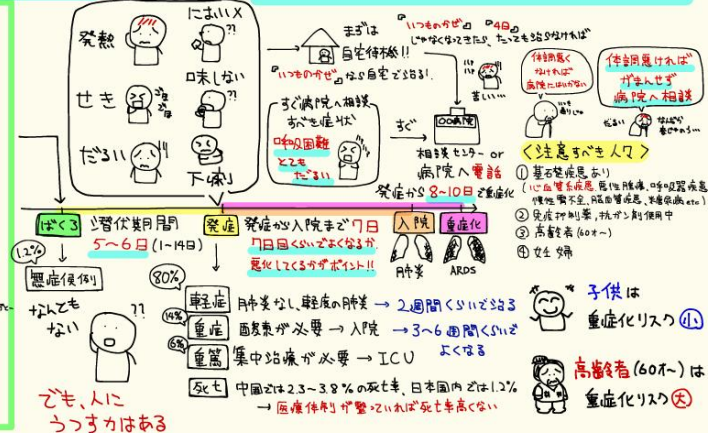 発熱
せき
だるい
においX
味しない
下痢
まずは
自宅待機!!
『いつものかぜ』なら自宅で治る!
『いつものかぜ』 『4日』
じゃなくなってきたら、たっても治らなければ
苦しい…
すぐ病院へ相談
すべき症状
呼吸困難
とても
だるい
すぐ
〇〇病院
相談センター or
病院へ電話
発症から8〜10日で重症化
体調悪く
なければ
病院にはいかない
体調悪ければ
がまんせず
病院へ相談
だるい
<注意すべき人々>
① 基礎疾患あり
(心血管系疾患、悪性腫瘍、呼吸器疾患
慢性腎不全、脳血管疾患、糖尿病etc)
② 免疫抑制薬、抗ガン剤使用中
③ 高齢者(60才〜)
④ 妊婦
ばくろ
潜伏期間
5〜6日(1〜14日)
発症
発症から入院まで7日
7日目くらいでよくなるか
悪化してくるかがポイント!!
入院
重症化
肺炎
ARDS
1.2%
無症候例
なんとも
ない
??
でも、人に
うつす力はある
80%
軽症 肺炎なし、軽度の肺炎 → 2週間くらいで治る
14%
重症 酸素が必要 → 入院 → 3〜6週間くらいで
よくなる
6%
重篤 集中治療が必要 → ICU
死亡 中国では2.3〜3.8%の死亡率、日本国内では1.2%
→ 医療体制が整っていれば死亡率高くない
子供は
重症化リスク小
高齢者(60才〜)は
重症化リスク大